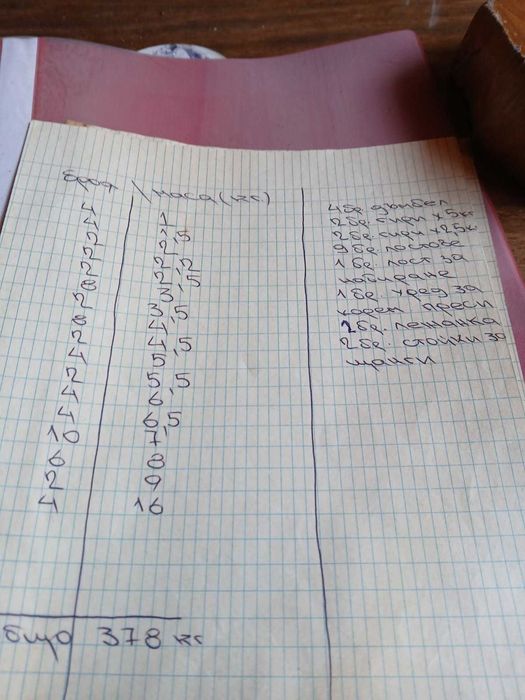 брой \ маса (кг.)
4 1
4 1,5
2 2
2 2,2
2 2,5
8 3
2 3,5
8 4
2 4,5
4 5
2 5,5
4 6
4 6,5
10 7
6 8
2 9
4 16
бщо 378 кг
4бр. дъмбел
2бр. x 5кг
2бр. x 25к
9бр. лостове
1бр. лост за
набиране
1бр. уред за
корем преси
2бр. лежанка
2бр. стойки за
щанги